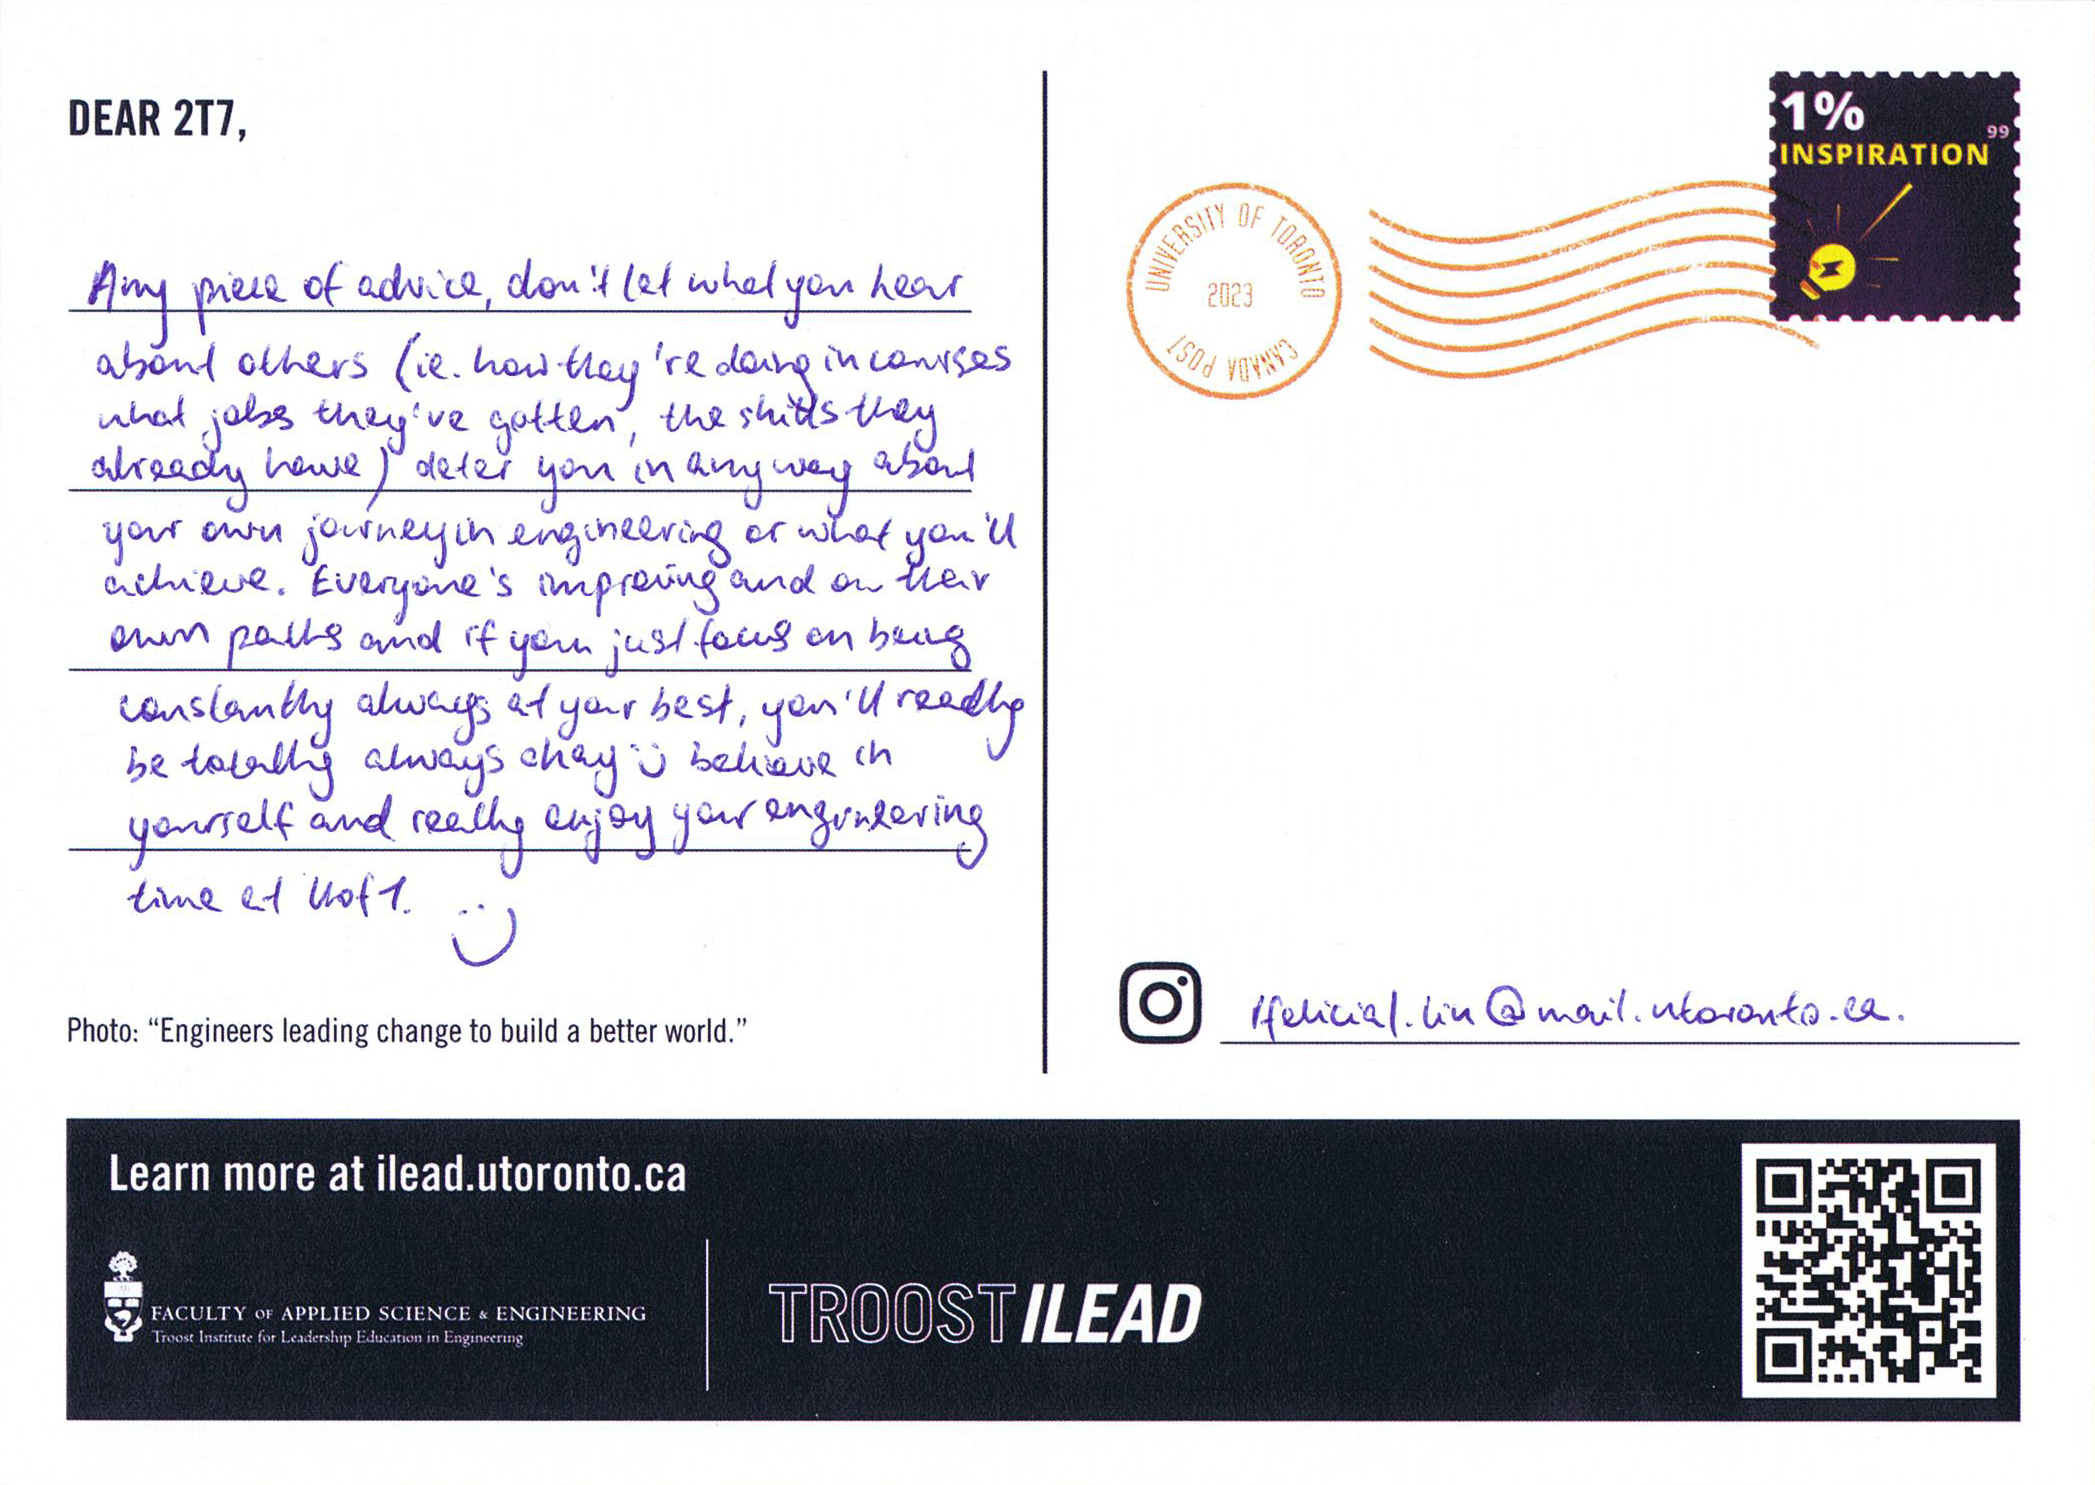 DEAR 2T7,
Any piece of advice, don't let what you hear
about others (ie. how they're doing in courses
what jobs they've gotten, the skills they
already have) deter you in any way about
your own journey in engineering or what you'll
achieve. Everyone's improving and on their
own paths and if you just focus on being
constantly always at your best, you'll really
be totally always okay :) believe in
yourself and really enjoy your engineering
time at UofT. :)
Photo: “Engineers leading change to build a better world.”
1%
99
INSPIRATION
UNIVERSITY OF TORONTO
2023
CANADA POST
lin@mail.utoronto.ca.
Learn more at ilead.utoronto.ca
FACULTY OF APPLIED SCIENCE & ENGINEERING
Troost Institute for Leadership Education in Engineering
TROOST ILEAD